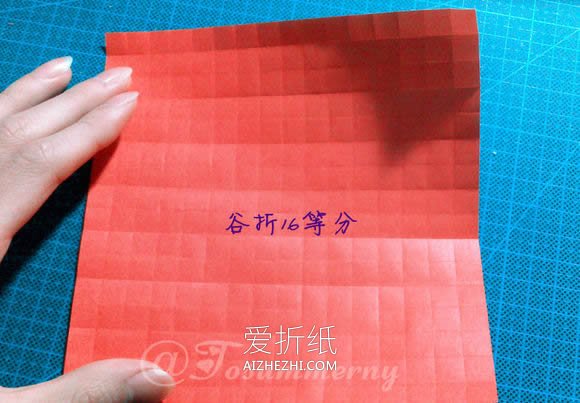 谷折16等分
爱折纸
AIZHEZHI.COM
@Tosummerny